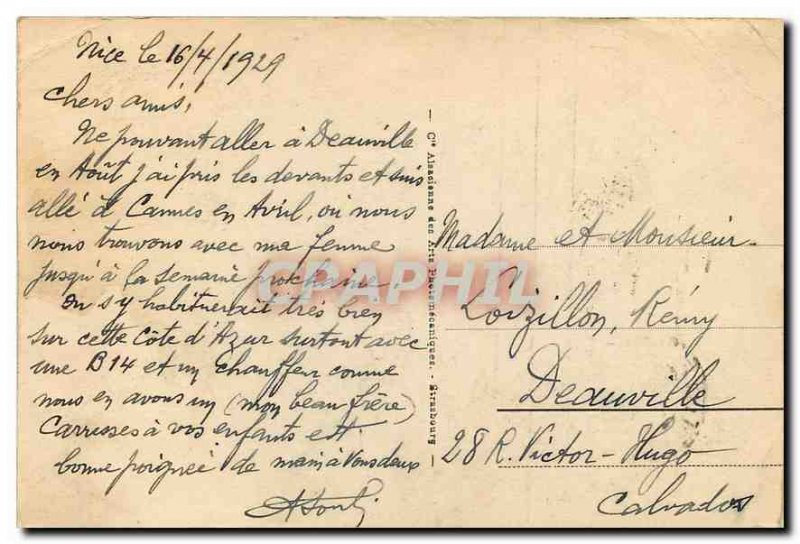 Nice le 16/4/1929
Chers amis,
Ne pouvant aller à Deauville
en Août j'ai pris les devants et suis
allé à Cannes en Avril, où nous
nous trouvons avec ma femme
jusqu'à la semaine prochaine.
On s'y habituerait très bien
sur cette Côte d'Azur surtout avec
une B14 et un chauffeur comme
nous en avons un (mon beau frère)
Carresses à vos enfants et
bonne poignée de main à Vous deux
Cie Alsacienne des Arts Photomécaniques. - Strasbourg
Madame et Monsieur
Loizillon, Rémy
Deauville
28 R. Victor-Hugo
Calvados
CPAPHIL